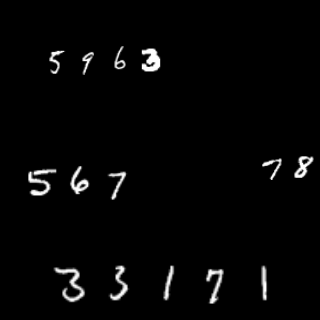 5963
567
78
33171